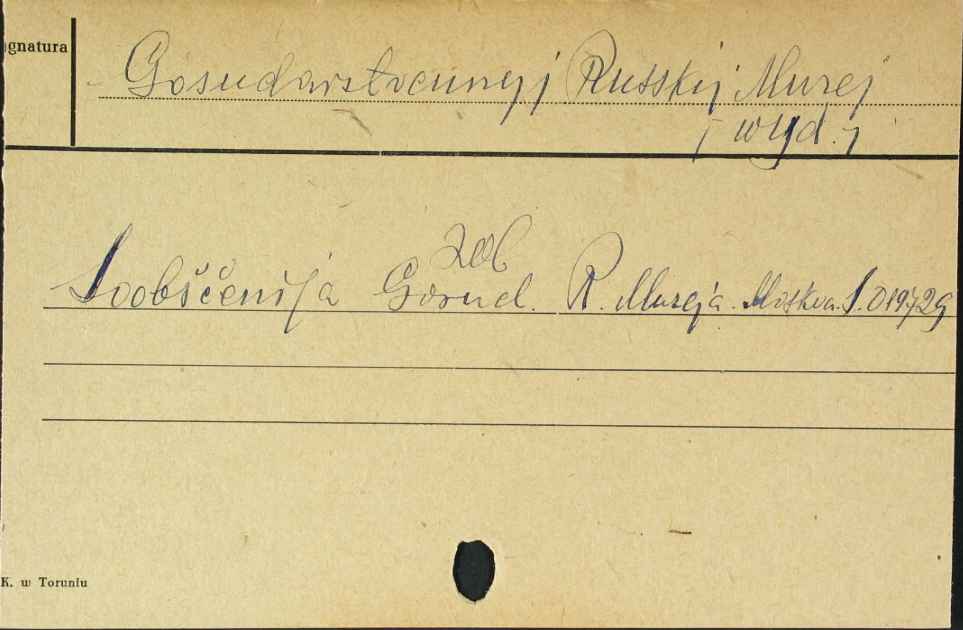 ognatura
Gosudarstvennyj Russkij Muzej
[wyd.]
zob
Soobščenija Gosud. R. Muzeja. Moskva. S.01972g
K. w Toruniu